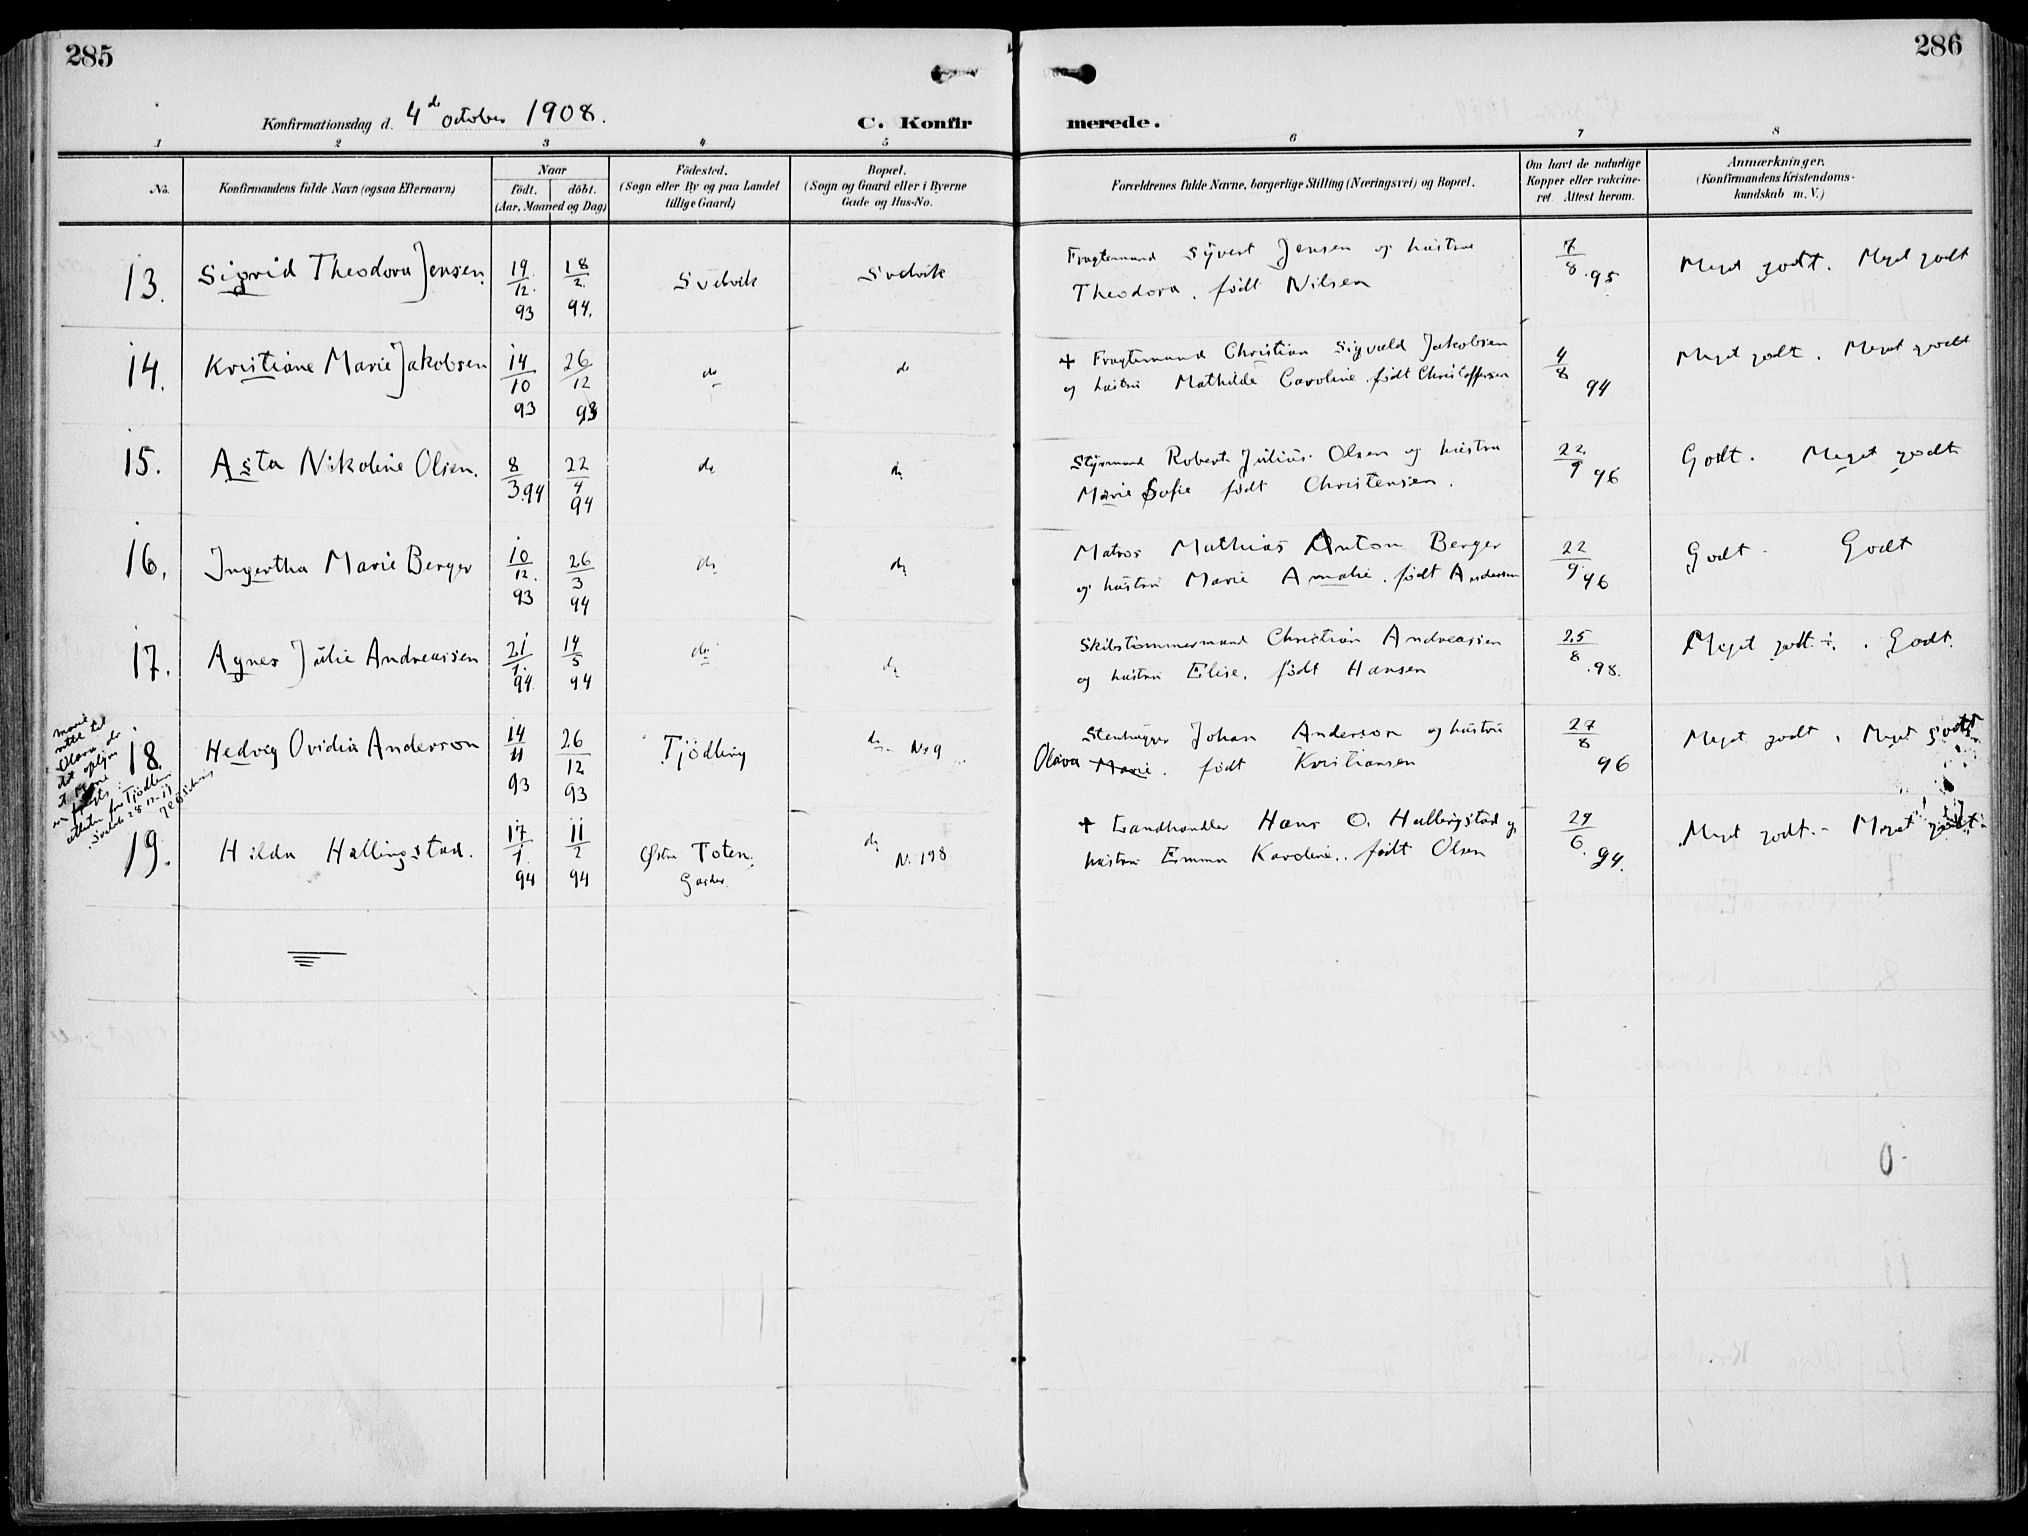 285
286
Konfirmationsdag d. 4de October 1908.
C. Konfirmerede.
1 2 3 4 5 6 7 8
No.
Konfirmandens fulde Navn (ogsaa Efternavn)
Naar
født. døbt.
(Aar, Maaned og Dag)
Födested.
(Sogn eller By og paa Landet
tillige Gaard)
Bopæl.
(Sogn og Gaard eller i Byerne
Gade og Hus-No.
Forældrenes fulde Navne, borgerlige Stilling (Næringsvei) og Bopæl.
Om havt de naturlige
Kopper eller vaccine-
ret. Attest herom.
Anmærkninger.
(Konfirmandens Kristendoms-
kundskab m. V.)
13. Sigrid Theodora Jensen. 19/12. 93 18/2. 94. Svelvik Svelvik
Fragtemand Syvert Jensen og hustru
Theodora, født Nilsen
7/8. 95 Meget godt. Meget godt
14. Kristiane Marie Jakobsen 14/10 93 26/12 93 do do
+ Fragtemand Christian Sigvald Jakobsen
og hustru Mathilde Caroline født Christoffersen
4/8 94 Meget godt. Meget godt
15. Asta Nikoline Olsen. 8/3. 94 22/4 94 do do
Styrmand Robert Julius Olsen og hustru
Marie Sofie født Christensen.
22/9 96 Godt. Meget godt
16. Ingertha Marie Berger 10/12. 93 26/3 94 do do
Matros Mathias Anton Berger
og hustru Marie Amalie, født Andersen
22/9 96 Godt. Godt
17. Agnes Julie Andreassen 21/1. 94 14/5 94 do do
Skibstømmermand Christian Andreassen
og hustru Elise, født Hansen
25/8. 98. Meget godt ÷. Godt.
18. Hedvig Ovidia Anderson 14/11 93 26/12 93 Tjödling do No 9
Stenhugger Johan Anderson og hustru
Olava Marie, født Kristiansen
27/8 96 Meget godt, Meget godt
19. Hilda Hallingstad. 17/1. 94 11/2 94 Østre Toten. do N. 198
+ Landhandler Hans O. Hallingstad og
hustru Emma Karoline, født Olsen
29/6. 94. Meget godt. - Meget godt